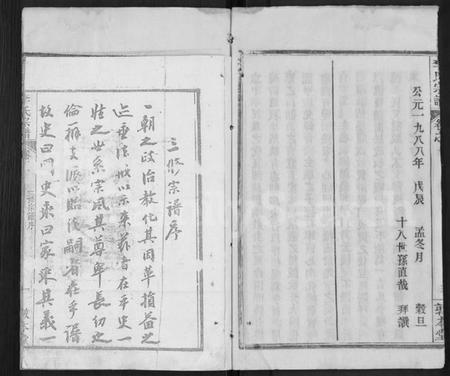 公元一九八八年 戊辰 孟冬月 穀旦
十八世孫直哉 拜讚
敦本堂
三修宗譜序
一朝之政治教化其因革損益之
迹垂法戒以示來茲者在乎史一
姓之世系宗風其尊卑長幼之
倫辨支派以貽後嗣者在乎譜
故史曰國史乘曰家乘其義一